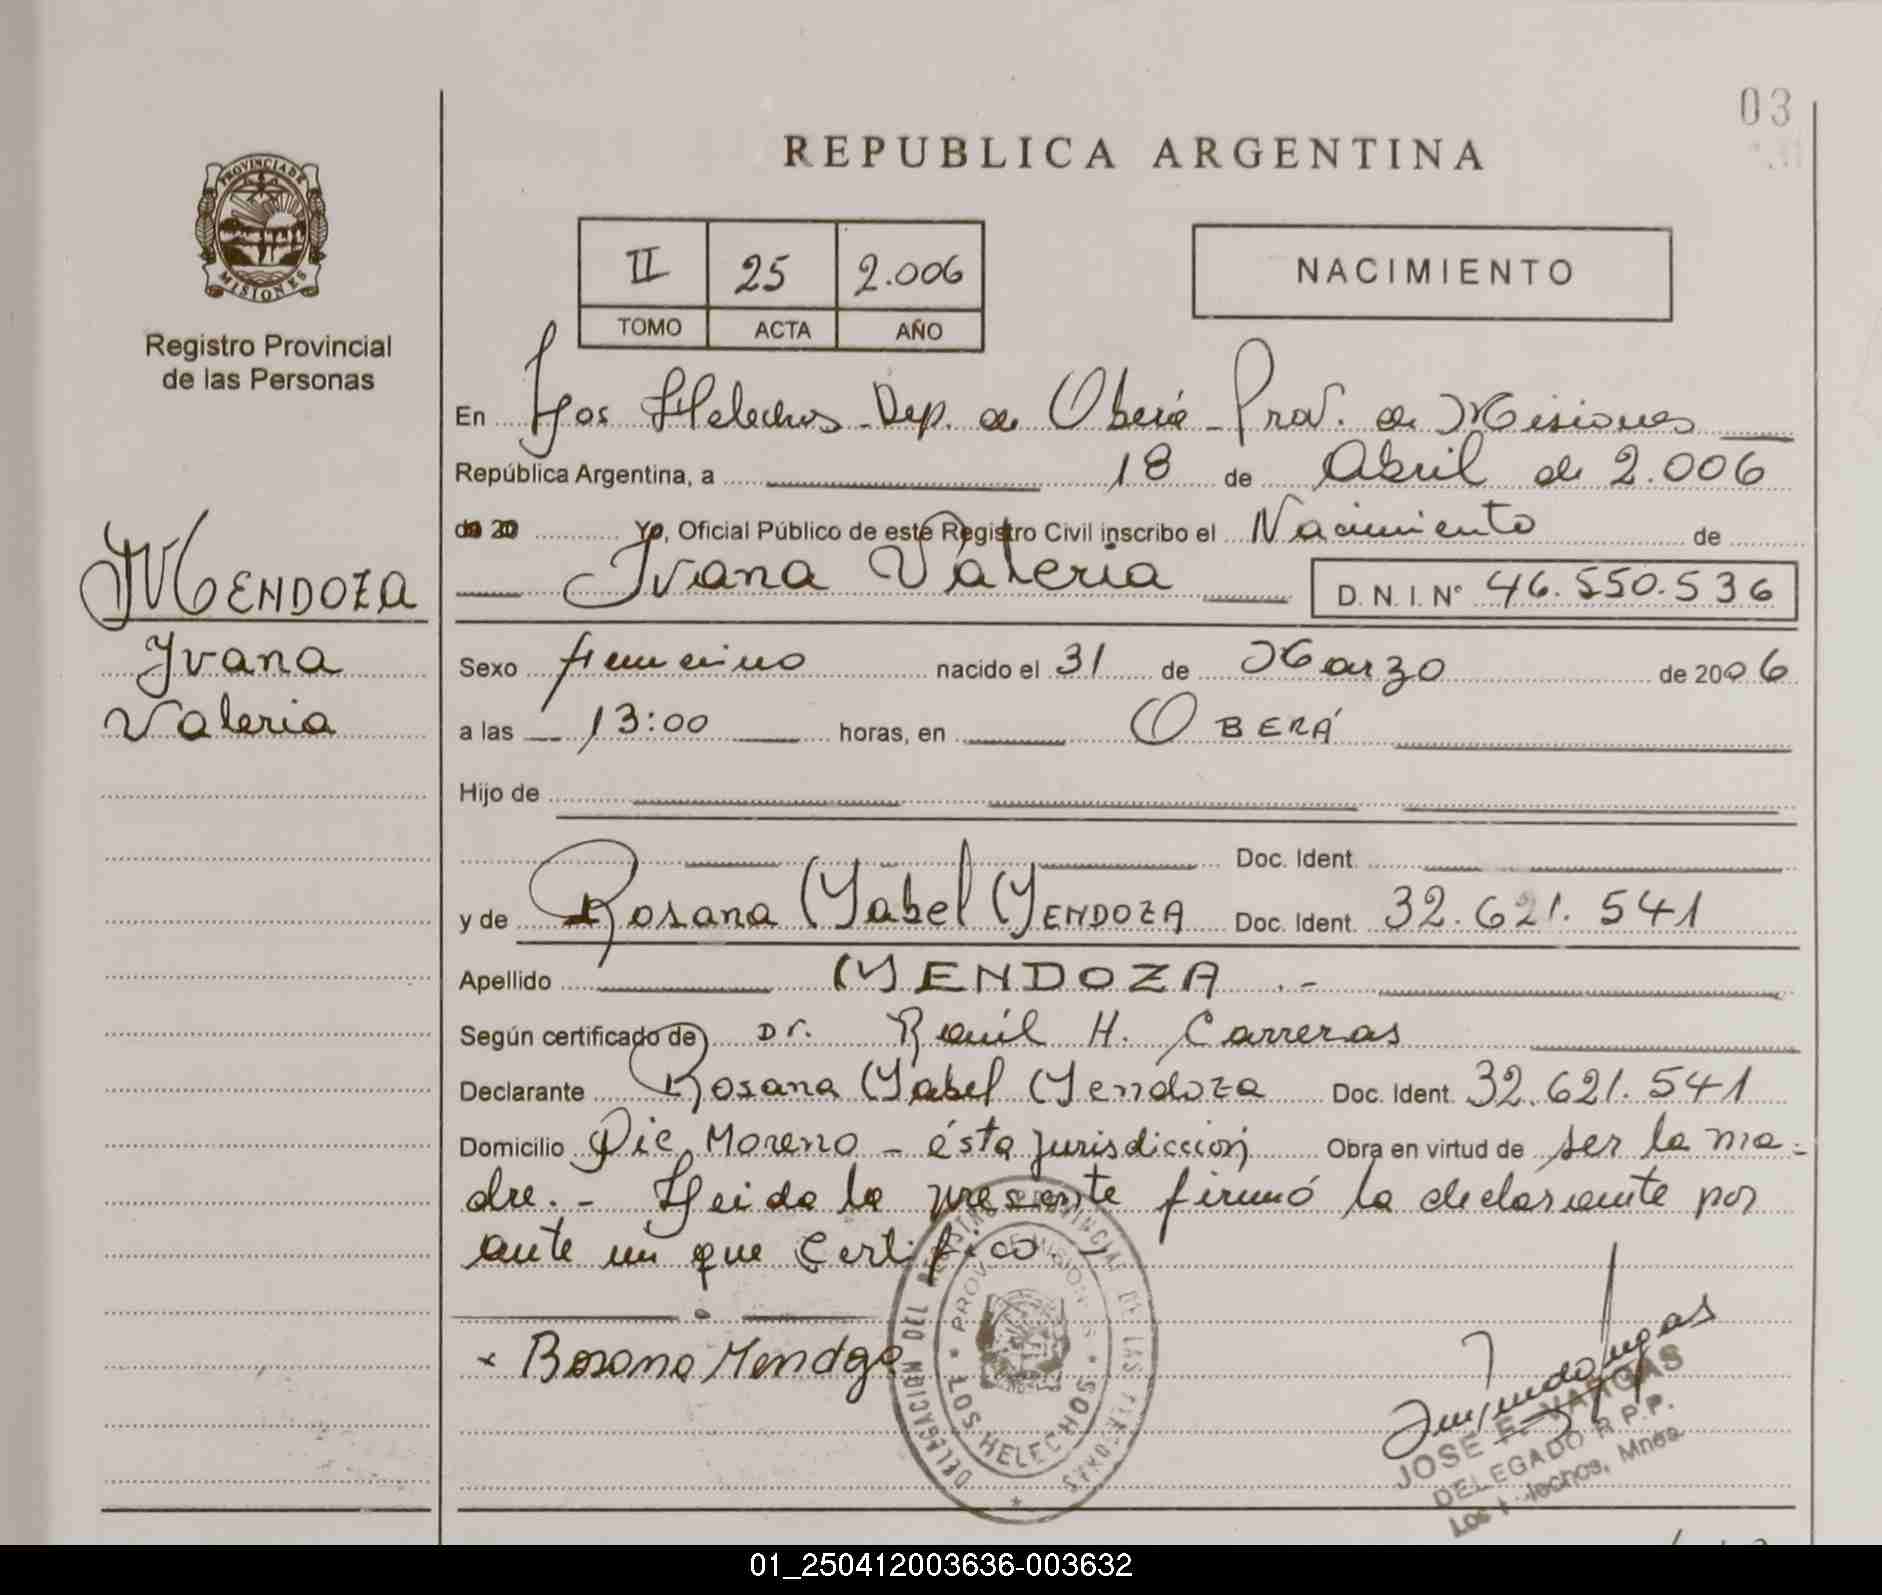 03
REPUBLICA ARGENTINA
PROVINCIA DE
MISIONES
Registro Provincial
de las Personas
II 25 2.006
TOMO ACTA AÑO
NACIMIENTO
En Los Helechos - Dep. de Oberá - Prov. de Misiones
República Argentina, a 18 de Abril de 2.006
de 20 Yo, Oficial Público de este Registro Civil inscribo el Nacimiento de
Ivana Valeria D.N.I. N° 46.550.536
MENDOZA
Ivana
Valeria
Sexo femenino nacido el 31 de Marzo de 2006
a las 13:00 horas, en OBERÁ
Hijo de
Doc. Ident.
y de Rosana Isabel MENDOZA Doc. Ident. 32.621.541
Apellido MENDOZA .-
Según certificado de Dr. Raúl H. Carreras
Declarante Rosana Isabel Mendoza Doc. Ident. 32.621.541
Domicilio Pic. Moreno - ésta jurisdicción Obra en virtud de ser la ma-
dre. - Leida la presente firmó la declarante por
ante mi que certifico. -
x Rosana Mendoza
DELEGACION DEL REGISTRO PROVINCIAL DE LAS PERSONAS
PROV. DE MISIONES
LOS HELECHOS
JOSE E. VARGAS
DELEGADO R.P.P.
Los Helechos, Mnes.
01_250412003636-003632